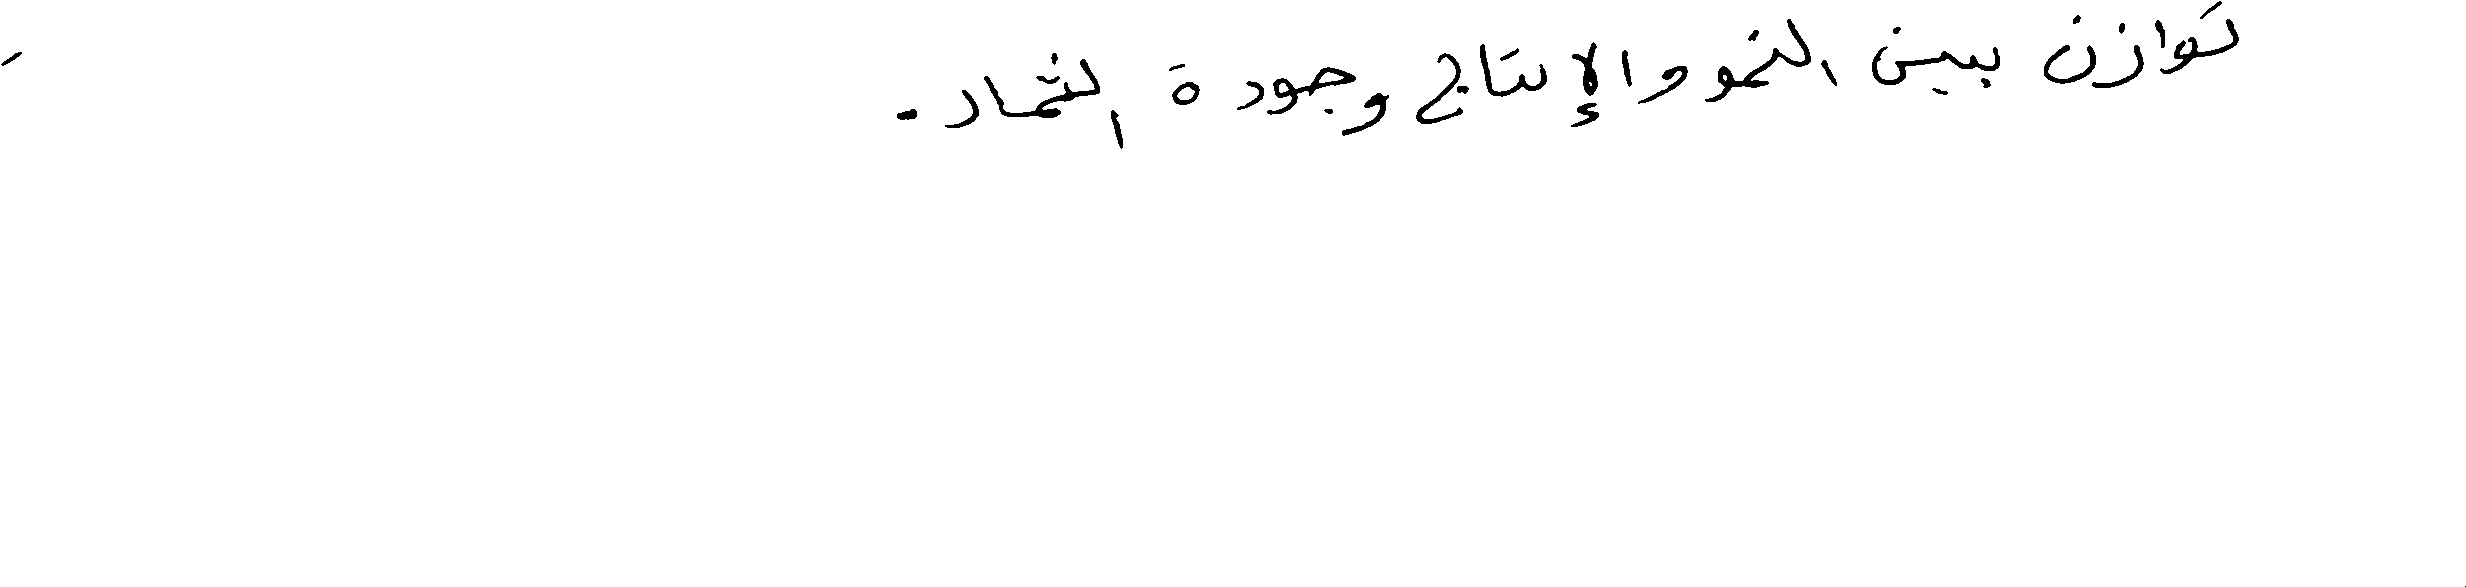 توازن بين النمو والإنتاج وجودة الثمار.